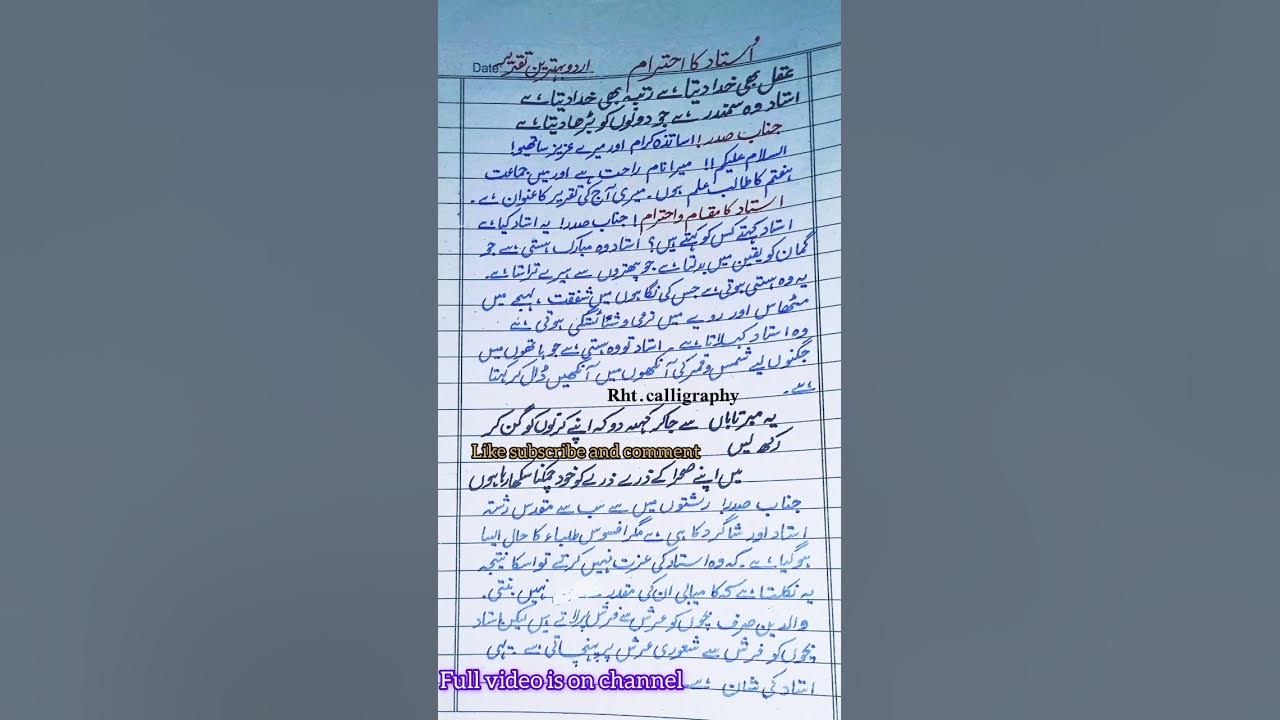 اُستاد کا احترام
اردو بہترین تقریر
Date:
عقل بھی خدا دیتا ہے رتبہ بھی خدا دیتا ہے
استاد وہ سمندر ہے جو دونوں کو بڑھا دیتا ہے
جناب صدر! اساتذہ کرام اور میرے عزیز ساتھیو!
السلام علیکم!! میرا نام راحت ہے اور میں جماعت
ہفتم کا طالب علم ہوں۔ میری آج کی تقریر کا عنوان ہے۔
استاد کا مقام و احترام! جناب صدر! یہ استاد کیا ہے
استاد کہتے کس کو کہتے ہیں؟ استاد وہ مبارک ہستی ہے جو
گمان کو یقین میں بدلتا ہے جو پتھروں سے ہیرے تراشتا ہے۔
یہ وہ ہستی ہوتی ہے جس کی نگاہوں میں شفقت، لہجے میں
مٹھاس اور رویے میں نرمی و شائستگی ہوتی ہے
وہ استاد کہلاتا ہے۔ استاد تو وہ ہستی ہے جو ہاتھوں میں
جگنوں لیے شمس و قمر کی آنکھوں میں آنکھیں ڈال کر کہتا
ہے۔
Rht.calligraphy
یہ مہر تاباں سے جا کر کہہ دو کہ اپنے کرنوں کو گن کر
رکھ لیں
Like subscribe and comment
میں اپنے صحرا کے ذرے ذرے کو خود چمکنا سکھا رہا ہوں
جناب صدر! رشتوں میں سے سب سے مقدس رشتہ
استاد اور شاگرد کا ہی ہے مگر افسوس طلباء کا حال ایسا
ہو گیا ہے۔ کہ وہ استاد کی عزت نہیں کرتے تو اسکا نتیجہ
یہ نکلتا ہے کہ کامیابی ان کی مقدر نہیں بنتی۔
والدین صرف بچوں کو عرش سے فرش پر لاتے ہیں لیکن استاد
بچوں کو فرش سے شعوری عرش پر پہنچاتی ہے۔ یہی
استاد کی شان ہے
Full video is on channel